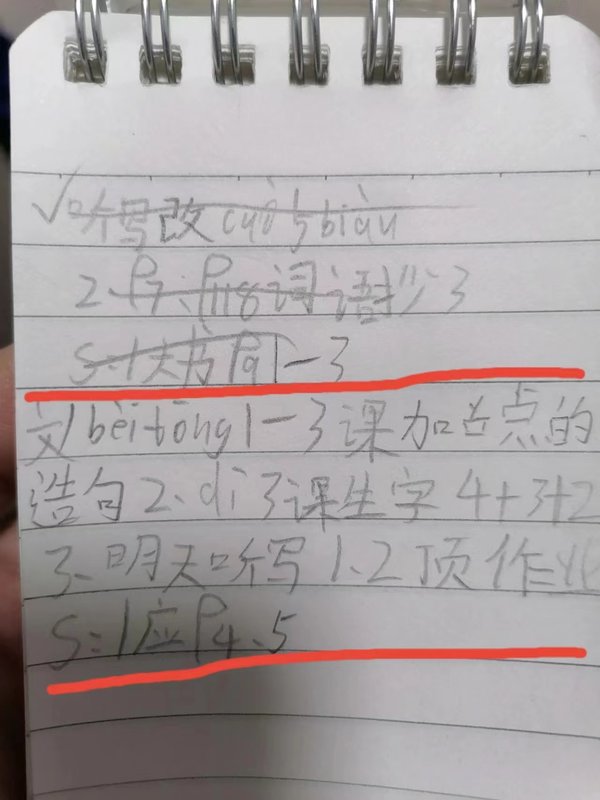 √听写改cuò5biàn
2、P7、P118词语抄3
S:1大书P91-3
文1bèi tōng1-3课加点的
造句2、di3课生字4+3+2
3、明天听写1、2项作业
S:1应P4、5